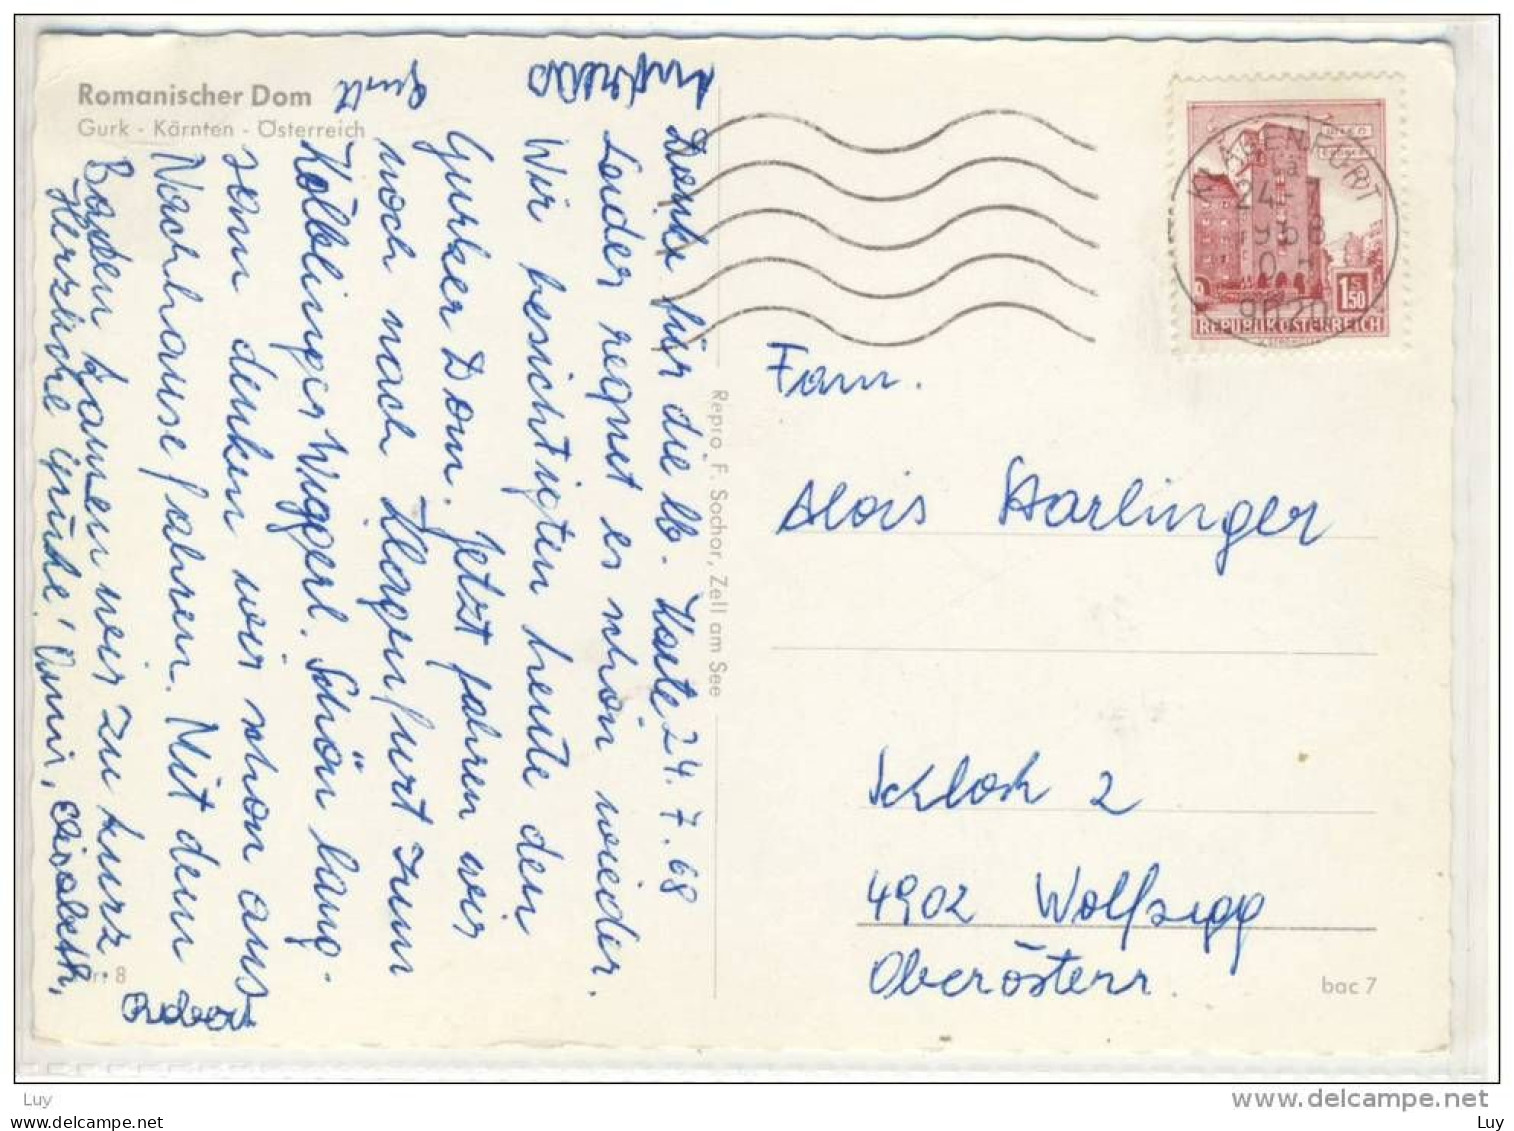 Romanischer Dom
Gurk - Kärnten - Österreich
Danke für die lb. Karte 24.7.68
Leider regnet es schon wieder.
Wir besichtigten heute den
Gurker Dom. Jetzt fahren wir
noch nach Klagenfurt zum
Kölblinger Wiggerl. Schön lang-
sam denken wir schon ans
Nachhause fahren. Mit dem
Baden kamen wir zu kurz.
Herzliche Grüße! Omi,
Repro F. Sochor, Zell am See
KLAGENFURT
24. 7.
1968
9020
S
1.50
REPUBLIK ÖSTERREICH
Fam.
Alois Harlinger
Schloß 2
4902 Wolfsegg
Oberösterr.
Nr. 8
bac 7
Luy
www.delcampe.net
Romanischer
Luy
delcampe.net